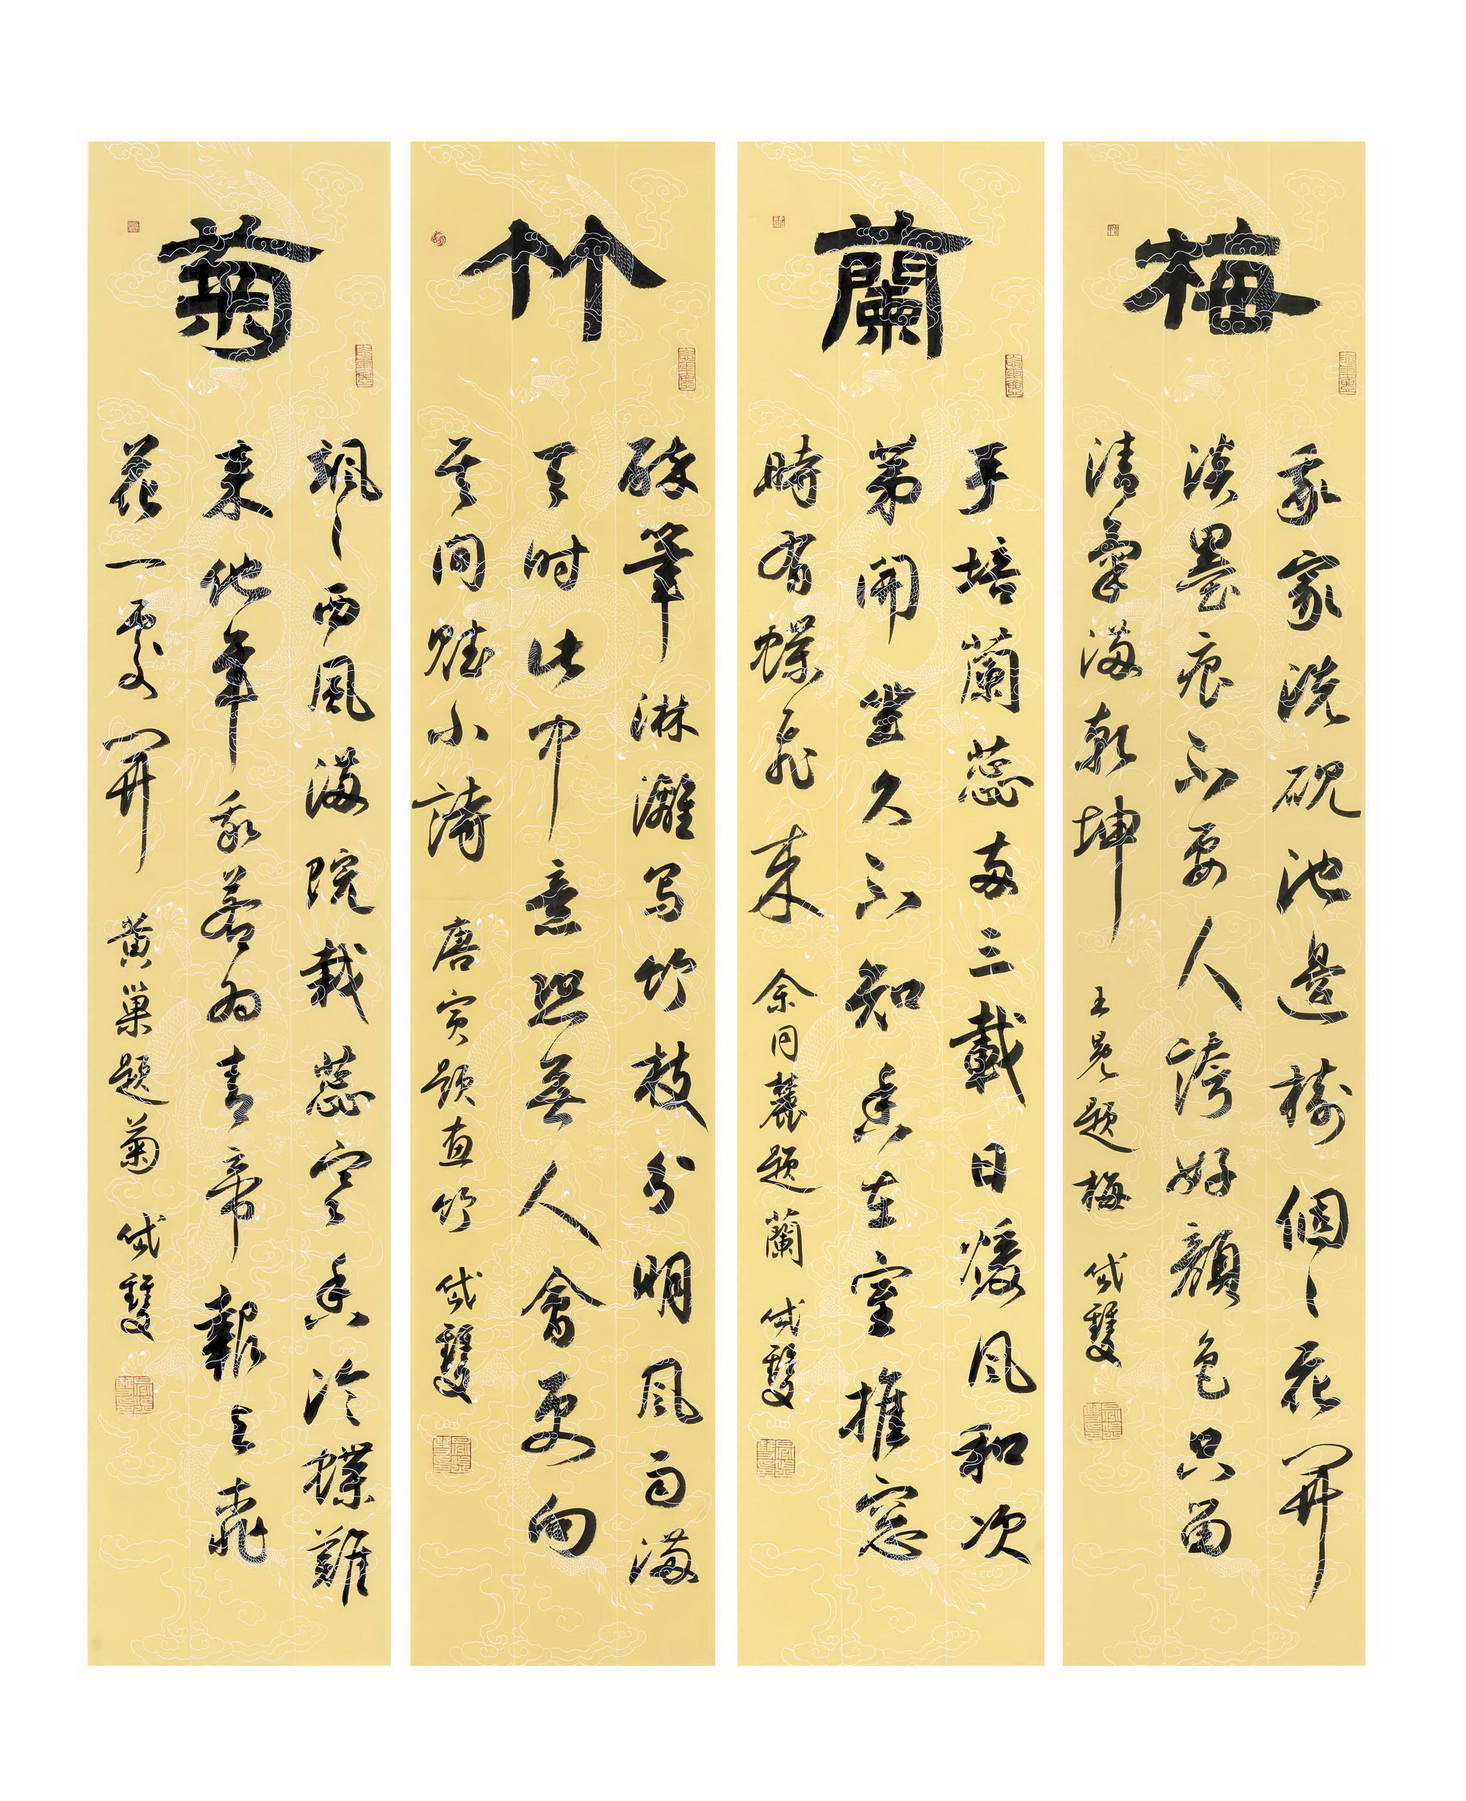 梅
我家洗硯池邊樹個〻花開
淡墨痕不要人誇好顏色只留
清氣滿乾坤 王冕題梅
蘭
手培蘭蕊兩三載日暖風和次
第開坐久不知香在室推窓
時有蝶飛來 余同麓題蘭
竹
醉筆淋灕写竹枝分明風雨滿
天时此中意思無人會更向
其间賦小詩 唐寅題畫竹
菊
颯〻西風滿院栽蕊寒香冷蝶難
來他年我若为青帝報与桃
花一處開 黄巢題菊